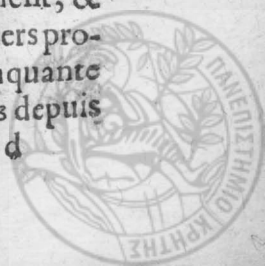 ment, &
ers pro-
nquante
s depuis
d
ΠΑΝΕΠΙΣΤΗΜΙΟ ΚΡΗΤΗΣ